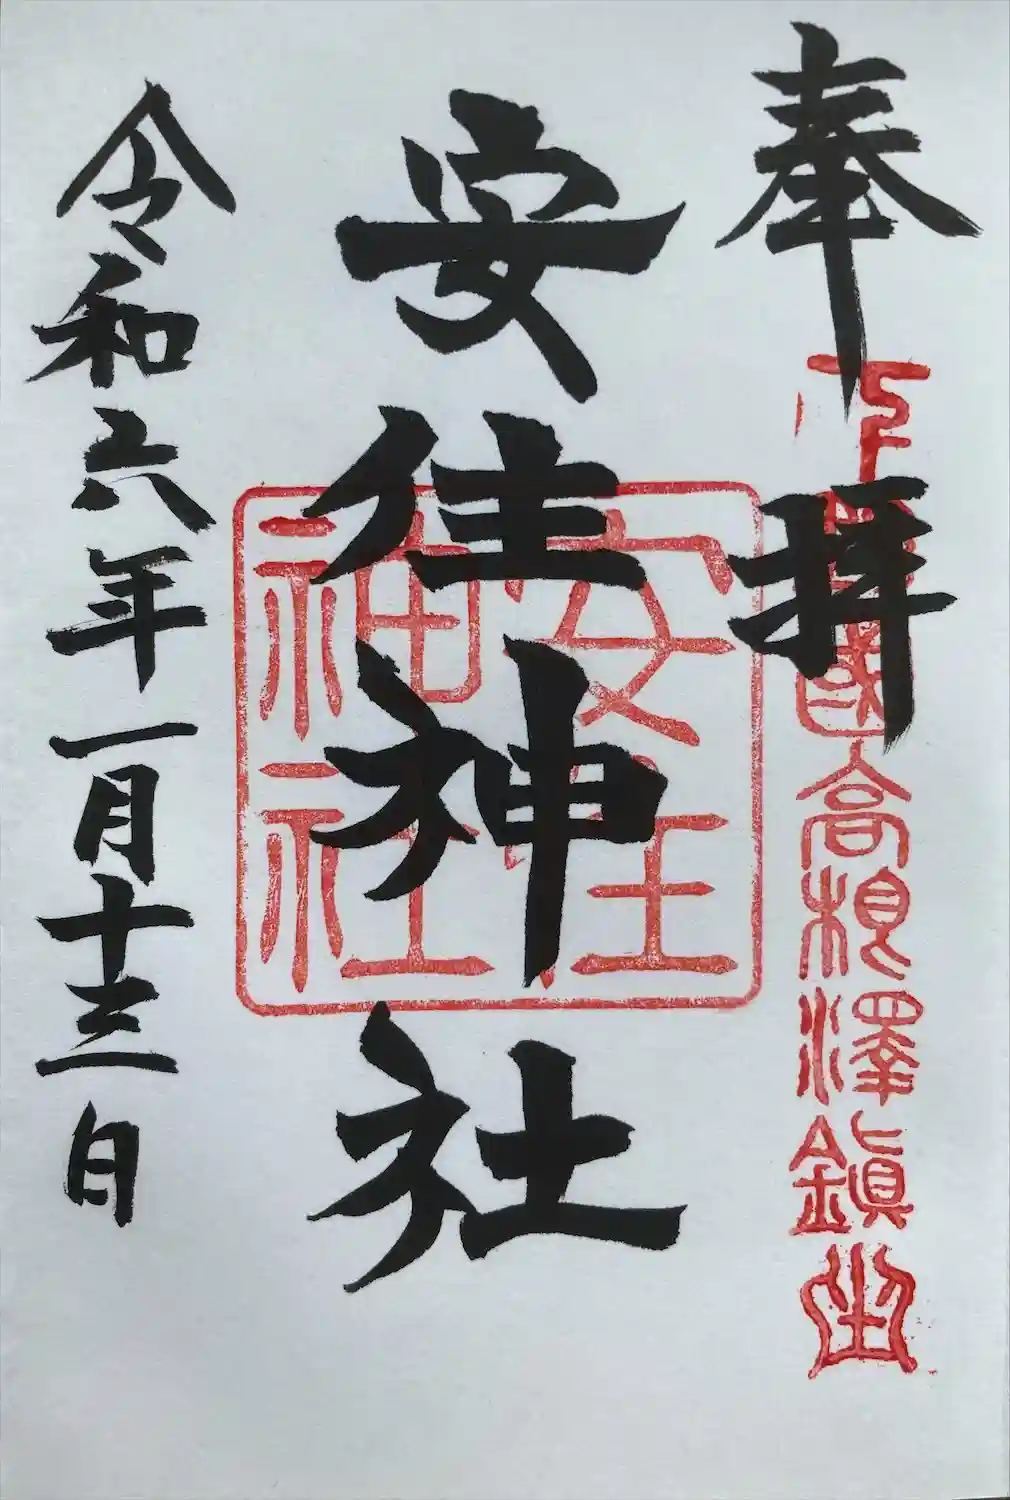 奉拝
下野國高根澤鎮座
安住神社
安住神社
令和六年一月十三日